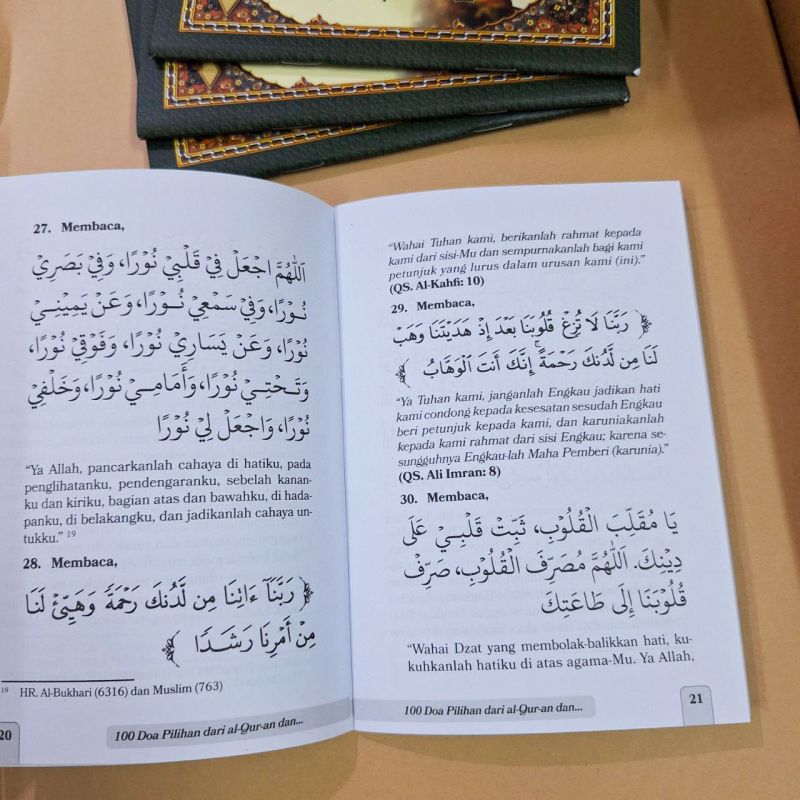 27. Membaca,
اَللّٰهُمَّ اجْعَلْ فِيْ قَلْبِيْ نُوْرًا، وَفِيْ بَصَرِيْ
نُوْرًا، وَفِيْ سَمْعِيْ نُوْرًا، وَعَنْ يَمِيْنِيْ
نُوْرًا، وَعَنْ يَسَارِيْ نُوْرًا، وَفَوْقِيْ نُوْرًا،
وَتَحْتِيْ نُوْرًا، وَأَمَامِيْ نُوْرًا، وَخَلْفِيْ
نُوْرًا، وَاجْعَلْ لِيْ نُوْرًا
“Ya Allah, pancarkanlah cahaya di hatiku, pada
penglihatanku, pendengaranku, sebelah kanan-
ku dan kiriku, bagian atas dan bawahku, di hada-
panku, di belakangku, dan jadikanlah cahaya un-
tukku.” 19
28. Membaca,
﴿ رَبَّنَآ ءَاتِنَا مِن لَّدُنكَ رَحْمَةً وَهَيِّئْ لَنَا
مِنْ أَمْرِنَا رَشَدًا ﴾
19 HR. Al-Bukhari (6316) dan Muslim (763)
20 100 Doa Pilihan dari al-Qur-an dan...
“Wahai Tuhan kami, berikanlah rahmat kepada
kami dari sisi-Mu dan sempurnakanlah bagi kami
petunjuk yang lurus dalam urusan kami (ini).”
(QS. Al-Kahfi: 10)
29. Membaca,
﴿ رَبَّنَا لَا تُزِغْ قُلُوبَنَا بَعْدَ إِذْ هَدَيْتَنَا وَهَبْ
لَنَا مِن لَّدُنكَ رَحْمَةً ۚ إِنَّكَ أَنتَ الْوَهَّابُ ﴾
“Ya Tuhan kami, janganlah Engkau jadikan hati
kami condong kepada kesesatan sesudah Engkau
beri petunjuk kepada kami, dan karuniakanlah
kepada kami rahmat dari sisi Engkau; karena se-
sungguhnya Engkau-lah Maha Pemberi (karunia).”
(QS. Ali Imran: 8)
30. Membaca,
يَا مُقَلِّبَ الْقُلُوْبِ، ثَبِّتْ قَلْبِيْ عَلَى
دِيْنِكَ. اَللّٰهُمَّ مُصَرِّفَ الْقُلُوْبِ، صَرِّفْ
قُلُوْبَنَا إِلَى طَاعَتِكَ
“Wahai Dzat yang membolak-balikkan hati, ku-
kuhkanlah hatiku di atas agama-Mu. Ya Allah,
100 Doa Pilihan dari al-Qur-an dan... 21